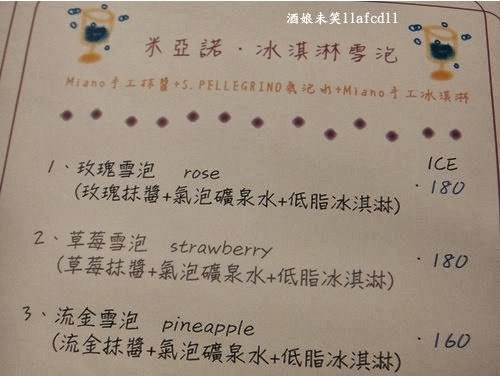 酒娘未笑llafcdll
米亞諾·冰淇淋雪泡
Miano手工抹醬+S.PELLEGRINO氣泡水+Miano手工冰淇淋
ICE
1、玫瑰雪泡 rose ·180
(玫瑰抹醬+氣泡礦泉水+低脂冰淇淋)
2、草莓雪泡 strawberry ·180
(草莓抹醬+氣泡礦泉水+低脂冰淇淋)
3、流金雪泡 pineapple ·160
(流金抹醬+氣泡礦泉水+低脂冰淇淋)